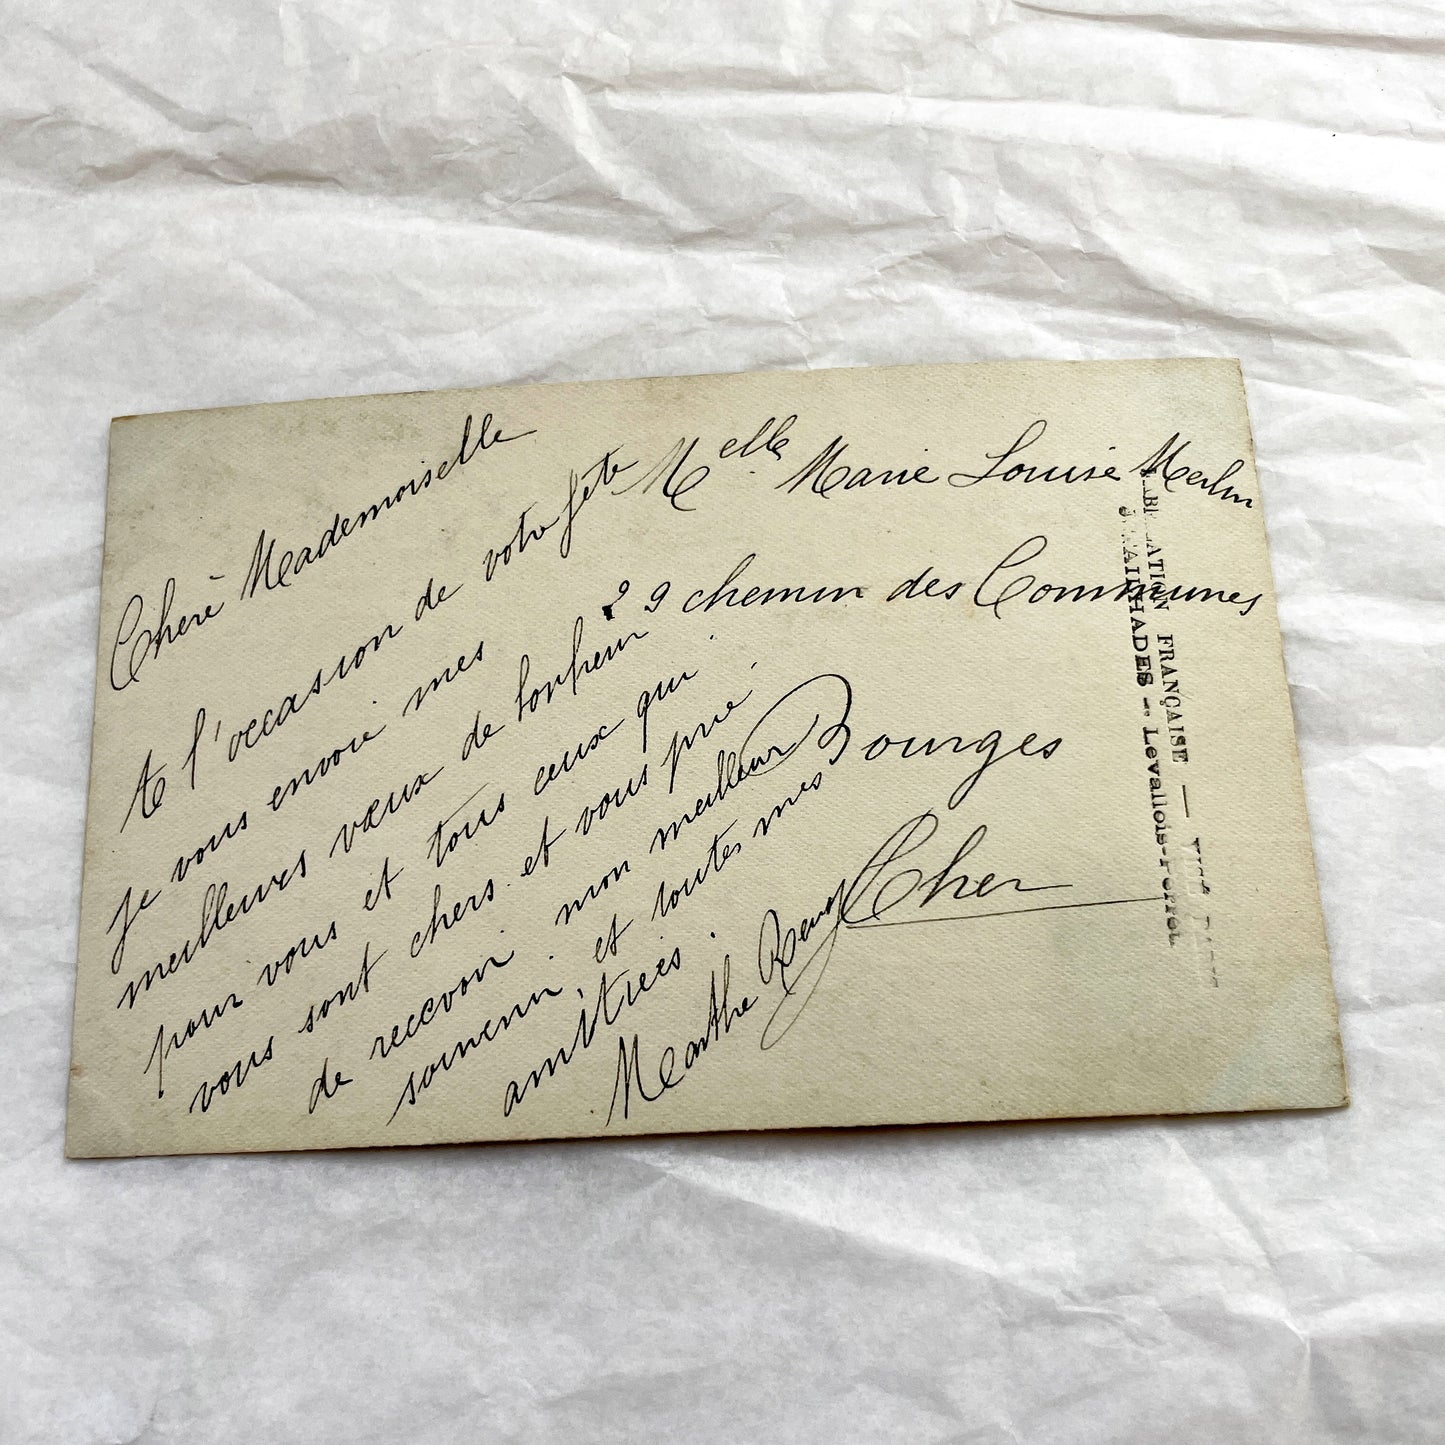 Cherè Mademoiselle
te l'occasion de votre fête
je vous envoie mes
meilleures vœux de bonheur
pour vous et tous ceux qui
vous sont chers et vous prie
de recevoir mon meilleur
souvenir, et toutes mes
amitiés.
Marthe
Melle Marie Louise Merlin
29 chemin des Communes
Bourges
Cher
FRANÇAISE —
Levallois-Perret